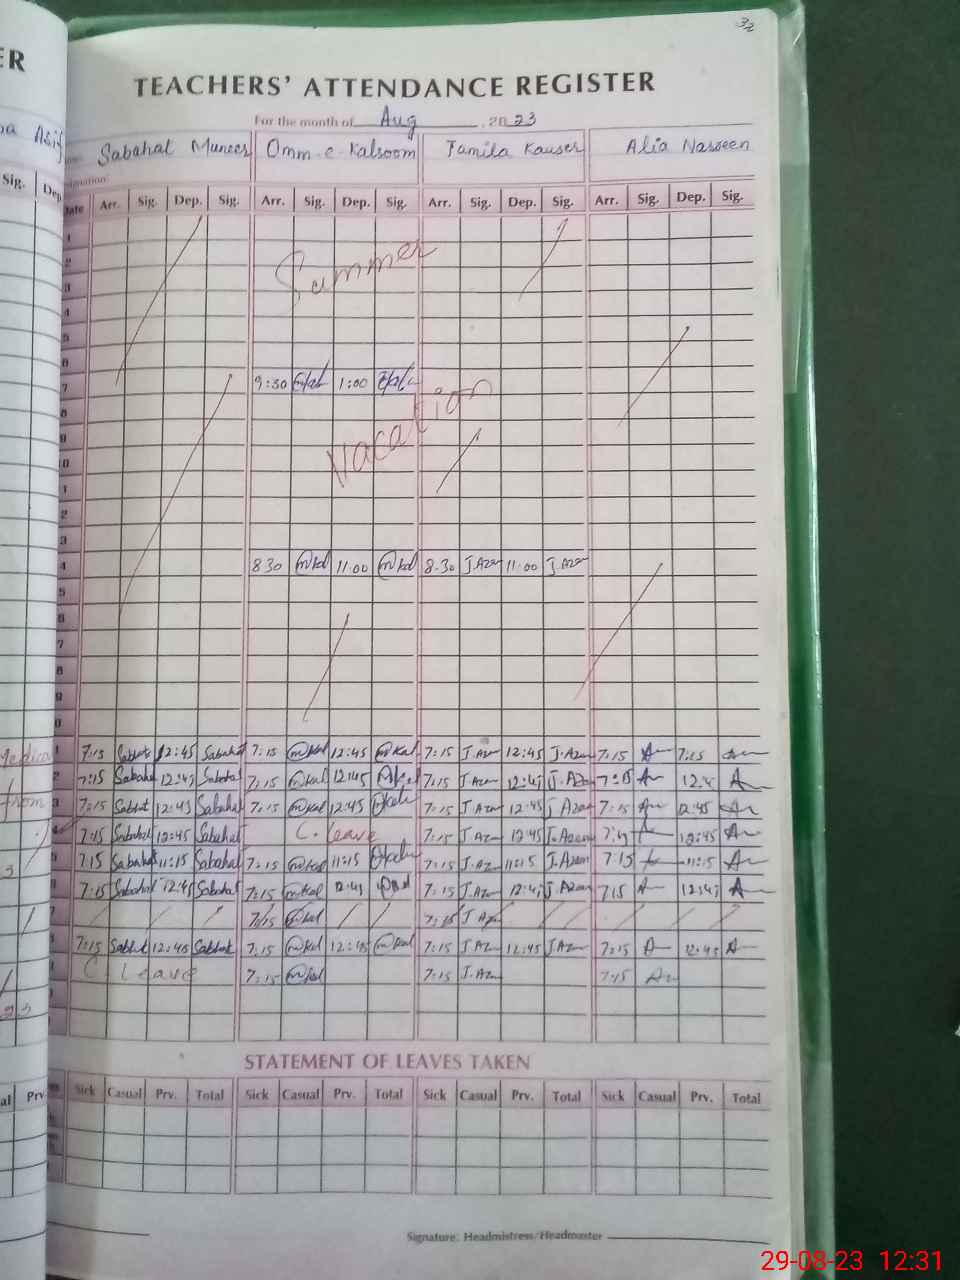 32
ER
TEACHERS' ATTENDANCE REGISTER
For the month of Aug , 2023
Asif
Sabahal Muneer Omm-e-Kalsoom Jamila Kauser Alia Nasreen
Sig. Dep
Date Arr. Sig. Dep. Sig. Arr. Sig. Dep. Sig. Arr. Sig. Dep. Sig. Arr. Sig. Dep. Sig.
1
2 Summer
3
4
5
6
7 9:30 1:00
8 Vacation
9
10
1
2
3
4 8:30 11:00 8:30 J.Azam 11:00 J.Azam
5
6
7
8
9
0
1 7:15 Sabahat 12:45 Sabahat 7:15 12:45 7:15 J.Azam 12:45 J.Azam 7:15 7:15
2 7:15 Sabahat 12:45 Sabahat 7:15 12:45 7:15 J.Azam 12:45 J.Azam 7:15 12:45
from 3 7:15 Sabahat 12:45 Sabahat 7:15 12:45 7:15 J.Azam 12:45 J.Azam 7:15 12:45
7:15 Sabahat 12:45 Sabahat C. Leave 7:15 J.Azam 12:45 J.Azam 12:45
7:15 Sabahat 11:15 Sabahat 7:15 11:15 7:15 J.Azam 11:15 J.Azam 7:15 11:15
7:15 Sabahat 12:45 Sabahat 7:15 12:45 7:15 J.Azam 12:45 J.Azam 7:15 12:45
7:15 7:15 J.Azam
7:15 Sabahat 12:45 Sabahat 7:15 12:45 7:15 J.Azam 12:45 J.Azam 7:15 12:45
C. Leave 7:15 7:15 J.Azam 7:15
23
STATEMENT OF LEAVES TAKEN
Prv. Sick Casual Prv. Total Sick Casual Prv. Total Sick Casual Prv. Total Sick Casual Prv. Total
Signature: Headmistress/Headmaster
29-08-23 12:31